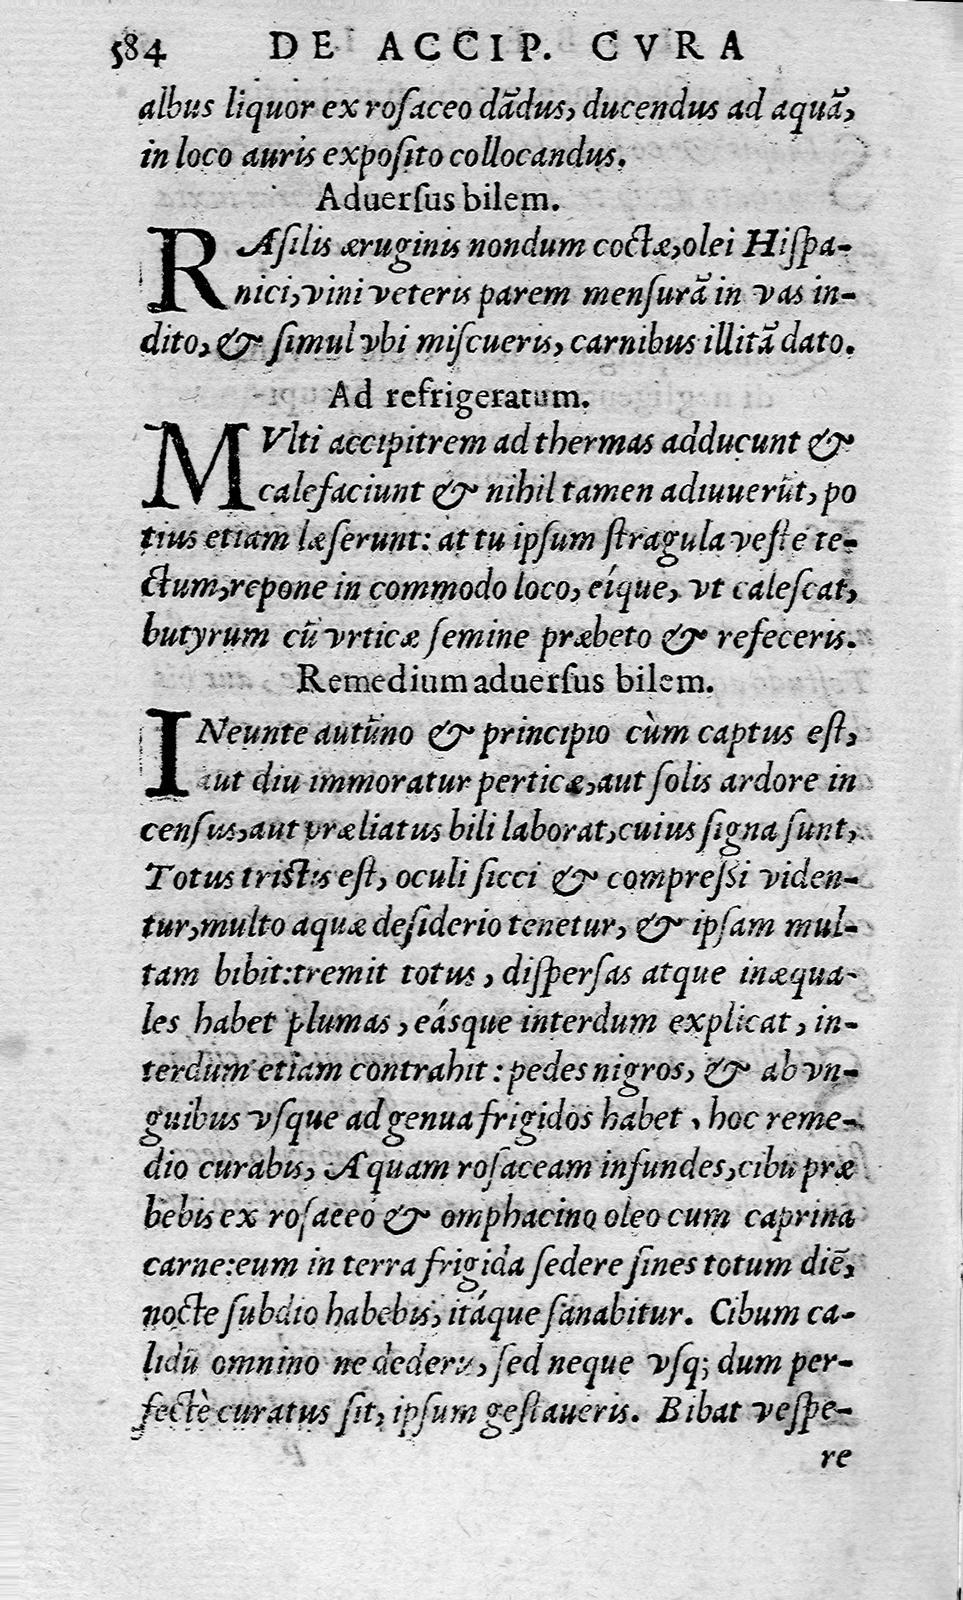 584 DE ACCIP. CVRA
albus liquor ex roſaceo dādus, ducendus ad aquā,
in loco auris expoſito collocandus.
Aduerſus bilem.
RAſilis æruginis nondum coctæ, olei Hiſpa-
nici, vini veteris parem menſurā in vas in-
dito, & ſimul vbi miſcueris, carnibus illitā dato.
Ad refrigeratum.
MVlti accipitrem ad thermas adducunt &
calefaciunt & nihil tamen adiuuerūt, po
tius etiam læſerunt: at tu ipſum ſtragula veſte te-
ctum, repone in commodo loco, eíque, vt caleſcat,
butyrum cū vrticæ ſemine præbeto & refeceris.
Remedium aduerſus bilem.
INeunte autūno & principio cùm captus eſt,
aut diu immoratur perticæ, aut ſolis ardore in
cenſus, aut præliatus bili laborat, cuius ſigna ſunt,
Totus triſtis eſt, oculi ſicci & compreſſi viden-
tur, multo aquæ deſiderio tenetur, & ipſam mul-
tam bibit: tremit totus, diſperſas atque inæqua-
les habet plumas, eásque interdum explicat, in-
terdum etiam contrahit: pedes nigros, & ab vn-
guibus vſque ad genua frigidos habet, hoc reme-
dio curabis, Aquam roſaceam infundes, cibū præ
bebis ex roſaceo & omphacino oleo cum caprina
carne: eum in terra frigida ſedere ſines totum diē,
nocte ſubdio habebis, itáque ſanabitur. Cibum ca-
lidū omnino ne dederis, ſed neque vſq; dum per-
fectè curatus ſit, ipſum geſtaueris. Bibat veſpe-
re